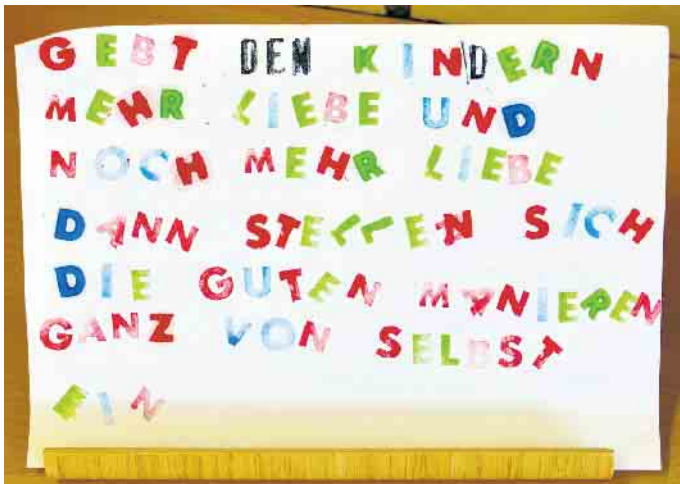 GEBT DEN KINDERN
MEHR LIEBE UND
NOCH MEHR LIEBE
DANN STELLEN SICH
DIE GUTEN MANIEREN
GANZ VON SELBST
EIN